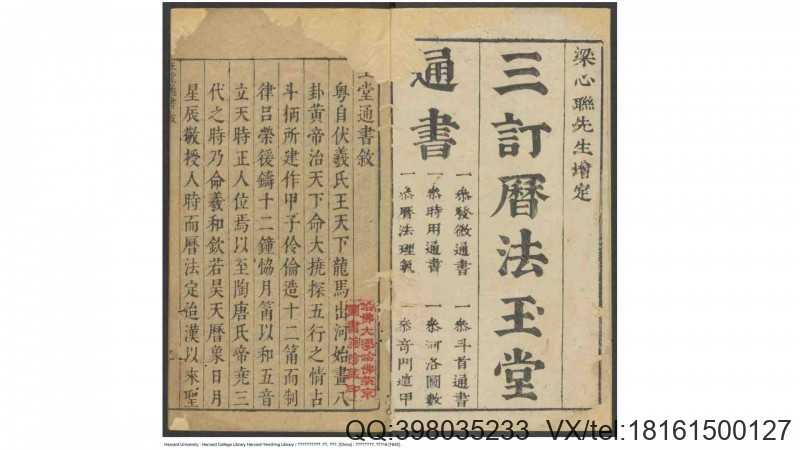 梁心聯先生增定
三訂曆法玉堂
通書
一叅發微通書
一叅斗首通書
一叅時用通書
一叅河洛圖數
一叅曆法理氣
一叅奇門遁甲
堂通書敘
粵自伏羲氏王天下龍馬出河始畫八
卦黃帝治天下命大撓探五行之情占
斗柄所建作甲子伶倫造十二筩而制
律呂榮援鑄十二鐘恊月筩以和五音
立天時正人位焉以至陶唐氏帝堯三
代之時乃命羲和欽若昊天曆象日月
星辰敬授人時而曆法定迨漢以來聖
哈佛大學哈佛燕京
圖書館珍藏印
Harvard University - Harvard College Library Harvard-Yenching Library / ??????????. ??, ???. [China] : ????????, ????
QQ:398035233 VX/tel:18161500127